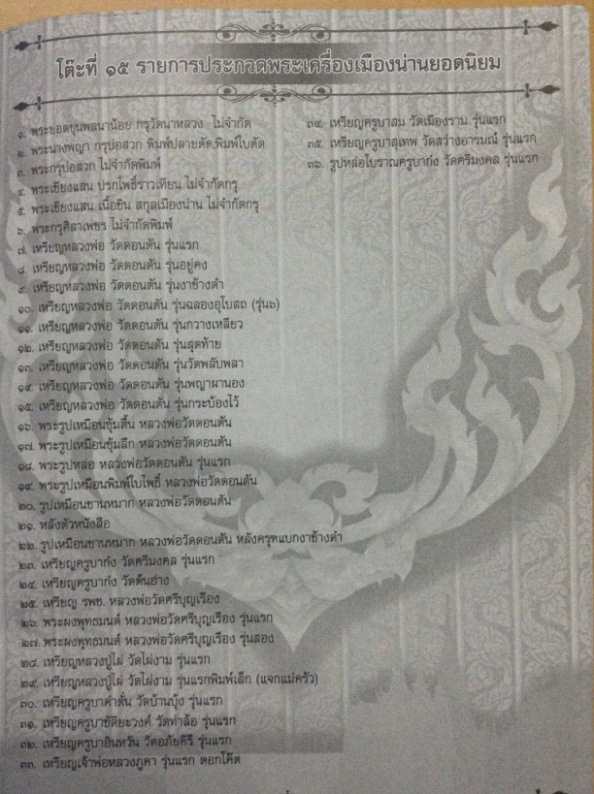 โต๊ะที่ ๑๕ รายการประกวดพระเครื่องเมืองน่านยอดนิยม
๑. พระยอดขุนพลนาน้อย กรุวัดนาหลวง ไม่จำกัด
๒. พระนางพญา กรุบ่อสวก พิมพ์ปลายตัด,พิมพ์ใบตัด
๓. พระกรุบ่อสวก ไม่จำกัดพิมพ์
๔. พระเชียงแสน ปรกโพธิ์ราวเทียน ไม่จำกัดกรุ
๕. พระเชียงแสน เนื้อชิน สกุลเมืองน่าน ไม่จำกัดกรุ
๖. พระกรุศิลาเพชร ไม่จำกัดพิมพ์
๗. เหรียญหลวงพ่อ วัดดอนตัน รุ่นแรก
๘. เหรียญหลวงพ่อ วัดดอนตัน รุ่นอยู่คง
๙. เหรียญหลวงพ่อ วัดดอนตัน รุ่นงาช้างดำ
๑๐. เหรียญหลวงพ่อ วัดดอนตัน รุ่นฉลองอุโบสถ (รุ่น๖)
๑๑. เหรียญหลวงพ่อ วัดดอนตัน รุ่นกวางเหลียว
๑๒. เหรียญหลวงพ่อ วัดดอนตัน รุ่นสุดท้าย
๑๓. เหรียญหลวงพ่อ วัดดอนตัน รุ่นวัดพลับพลา
๑๔. เหรียญหลวงพ่อ วัดดอนตัน รุ่นพญาผานอง
๑๕. เหรียญหลวงพ่อ วัดดอนตัน รุ่นกระบ้องไว้
๑๖. พระรูปเหมือนซุ้มตื้น หลวงพ่อวัดดอนตัน
๑๗. พระรูปเหมือนซุ้มลึก หลวงพ่อวัดดอนตัน
๑๘. พระรูปหล่อ หลวงพ่อวัดดอนตัน รุ่นแรก
๑๙. พระรูปเหมือนพิมพ์ใบโพธิ์ หลวงพ่อวัดดอนตัน
๒๐. รูปเหมือนชานหมาก หลวงพ่อวัดดอนตัน
๒๑. หลังตัวหนังสือ
๒๒. รูปเหมือนชานหมาก หลวงพ่อวัดดอนตัน หลังครุฑแบกงาช้างดำ
๒๓. เหรียญครูบาก๋ง วัดศรีมงคล รุ่นแรก
๒๔. เหรียญครูบาก๋ง วัดต้นฮ่าง
๒๕. เหรียญ รพช. หลวงพ่อวัดศรีบุญเรือง
๒๖. พระผงพุทธมนต์ หลวงพ่อวัดศรีบุญเรือง รุ่นแรก
๒๗. พระผงพุทธมนต์ หลวงพ่อวัดศรีบุญเรือง รุ่นสอง
๒๘. เหรียญหลวงปู่ไผ่ วัดไผ่งาม รุ่นแรก
๒๙. เหรียญหลวงปู่ไผ่ วัดไผ่งาม รุ่นแรกพิมพ์เล็ก (แจกแม่ครัว)
๓๐. เหรียญครูบาคำตั๋น วัดบ้านบุ้ง รุ่นแรก
๓๑. เหรียญครูบาขัติยะวงค์ วัดท่าล้อ รุ่นแรก
๓๒. เหรียญครูบาอินหวัน วัดอภัยคีรี รุ่นแรก
๓๓. เหรียญเจ้าพ่อหลวงภูคา รุ่นแรก ตอกโค๊ต
๓๔. เหรียญครูบาสม วัดเมืองราม รุ่นแรก
๓๕. เหรียญครูบาสุเทพ วัดสว่างอารมณ์ รุ่นแรก
๓๖. รูปหล่อโบราณครูบาก๋ง วัดศรีมงคล รุ่นแรก